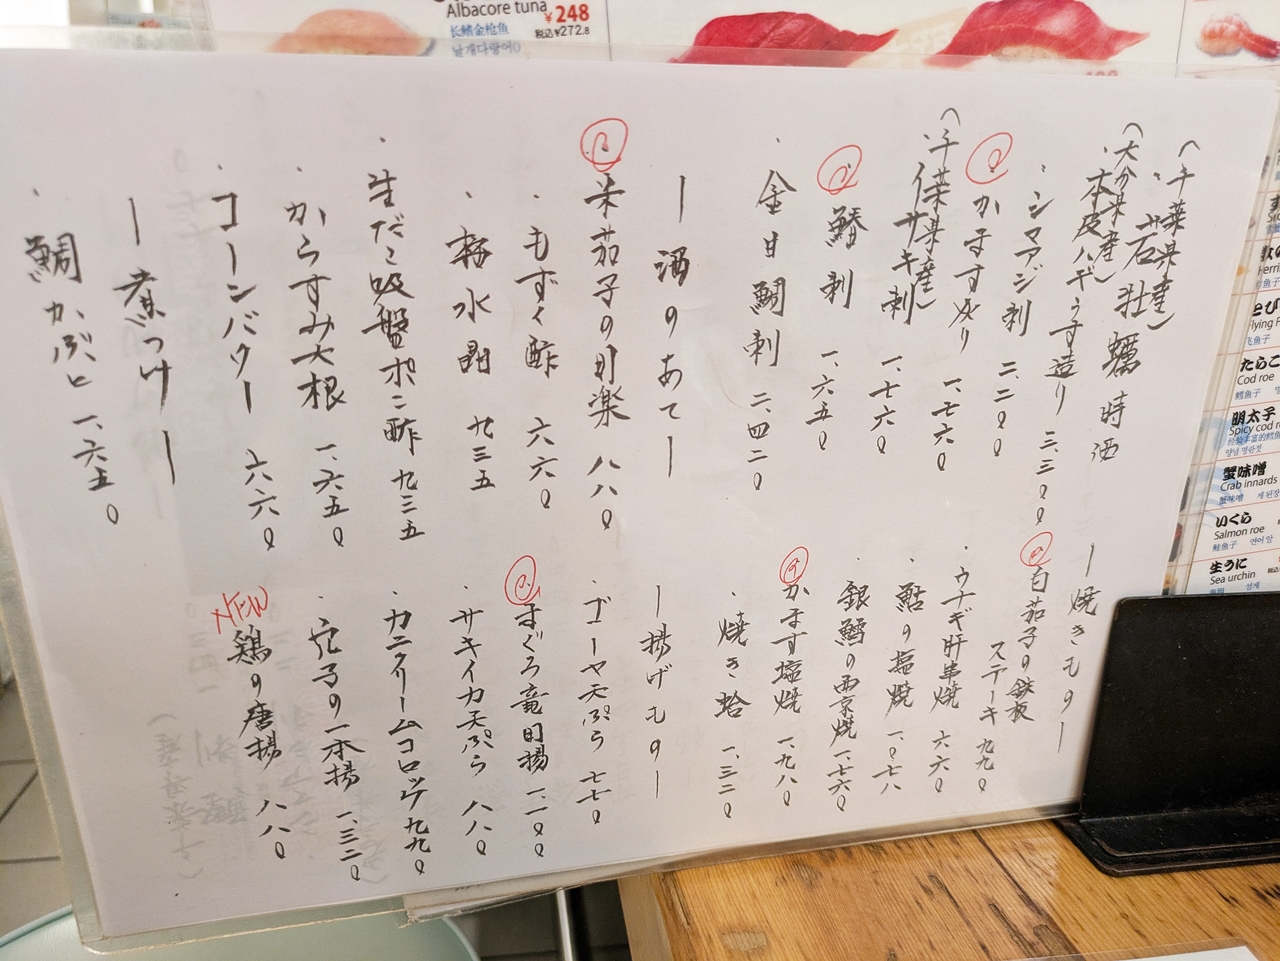 (千葉県産)
・岩牡蠣 時酒
(大分県産)
・本皮ハギうす造り 三、三〇〇
・シマアジ刺 二、二〇〇
かます炙り 一、七六〇
(千葉県産)
・イサキ刺 一、七六〇
鰆刺 一、六五〇
・金目鯛刺 二、四二〇
ー酒のあてー
米茄子の田楽 八八〇
・もずく酢 六六〇
・梅水晶 九三五
・生だこ吸盤ポン酢 九三五
・からすみ大根 一、六五〇
・コーンバター 六六〇
ー煮つけー
・鯛かぶと 一、六五〇
ー焼きものー
白茄子の鉄板
ステーキ 九九〇
・ウナギ肝串焼 六六〇
・鮎の塩焼 一、〇七八
・銀鱈の西京焼 一、七六〇
かます塩焼 一、九八〇
・焼き蛤 一、三二〇
ー揚げものー
・ゴーヤ天ぷら 七七〇
まぐろ竜田揚 一、一〇〇
・サキイカ天ぷら 八八〇
・カニクリームコロッケ 九九〇
・穴子の一本揚 一、三二〇
NEW
鶏の唐揚 八八〇
Albacore tuna
¥248
税込¥272.8
长鳍金枪鱼
날개다랑어
たらこ
Cod roe
鳕鱼子
明太子
Spicy cod r
양념 명란젓
蟹味噌
Crab innards
蟹味噌
いくら
Salmon roe
鲑鱼子 연어 알
生うに
Sea urchin
海胆 성게